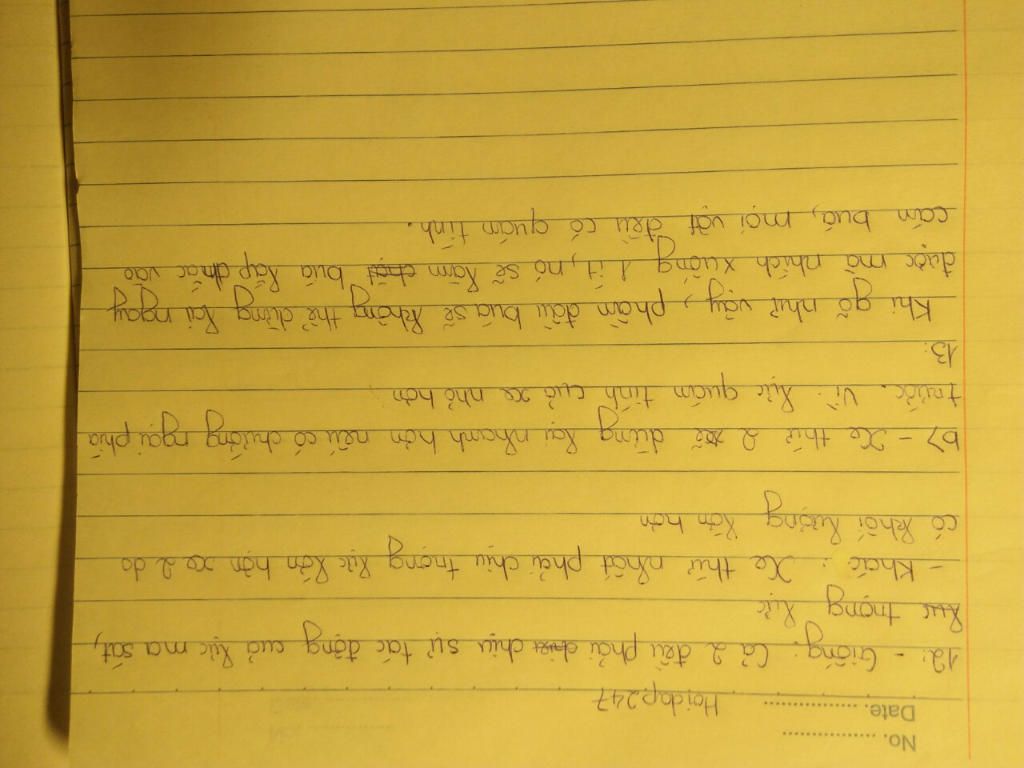 No. ................
Date. ................ Hoidap247
12: - Giống: Cả 2 đều phải chịu sự tác động của lực ma sát,
trọng lực
- Khác: Xe thứ nhất phải chịu trọng lực lớn hơn xe 2 do
có khối lượng lớn hơn
b) - Xe thứ 2 dừng lại nhanh hơn nếu có chướng ngại phía
trước. Vì: lực quán tính của xe nhỏ hơn
13:
Khi gõ như vậy, phần đầu búa sẽ không thể dừng lại ngay
được mà nhích xuống 1 ít, nó sẽ làm búa lắp chắc vào
cán búa, mọi vật đều có quán tính.